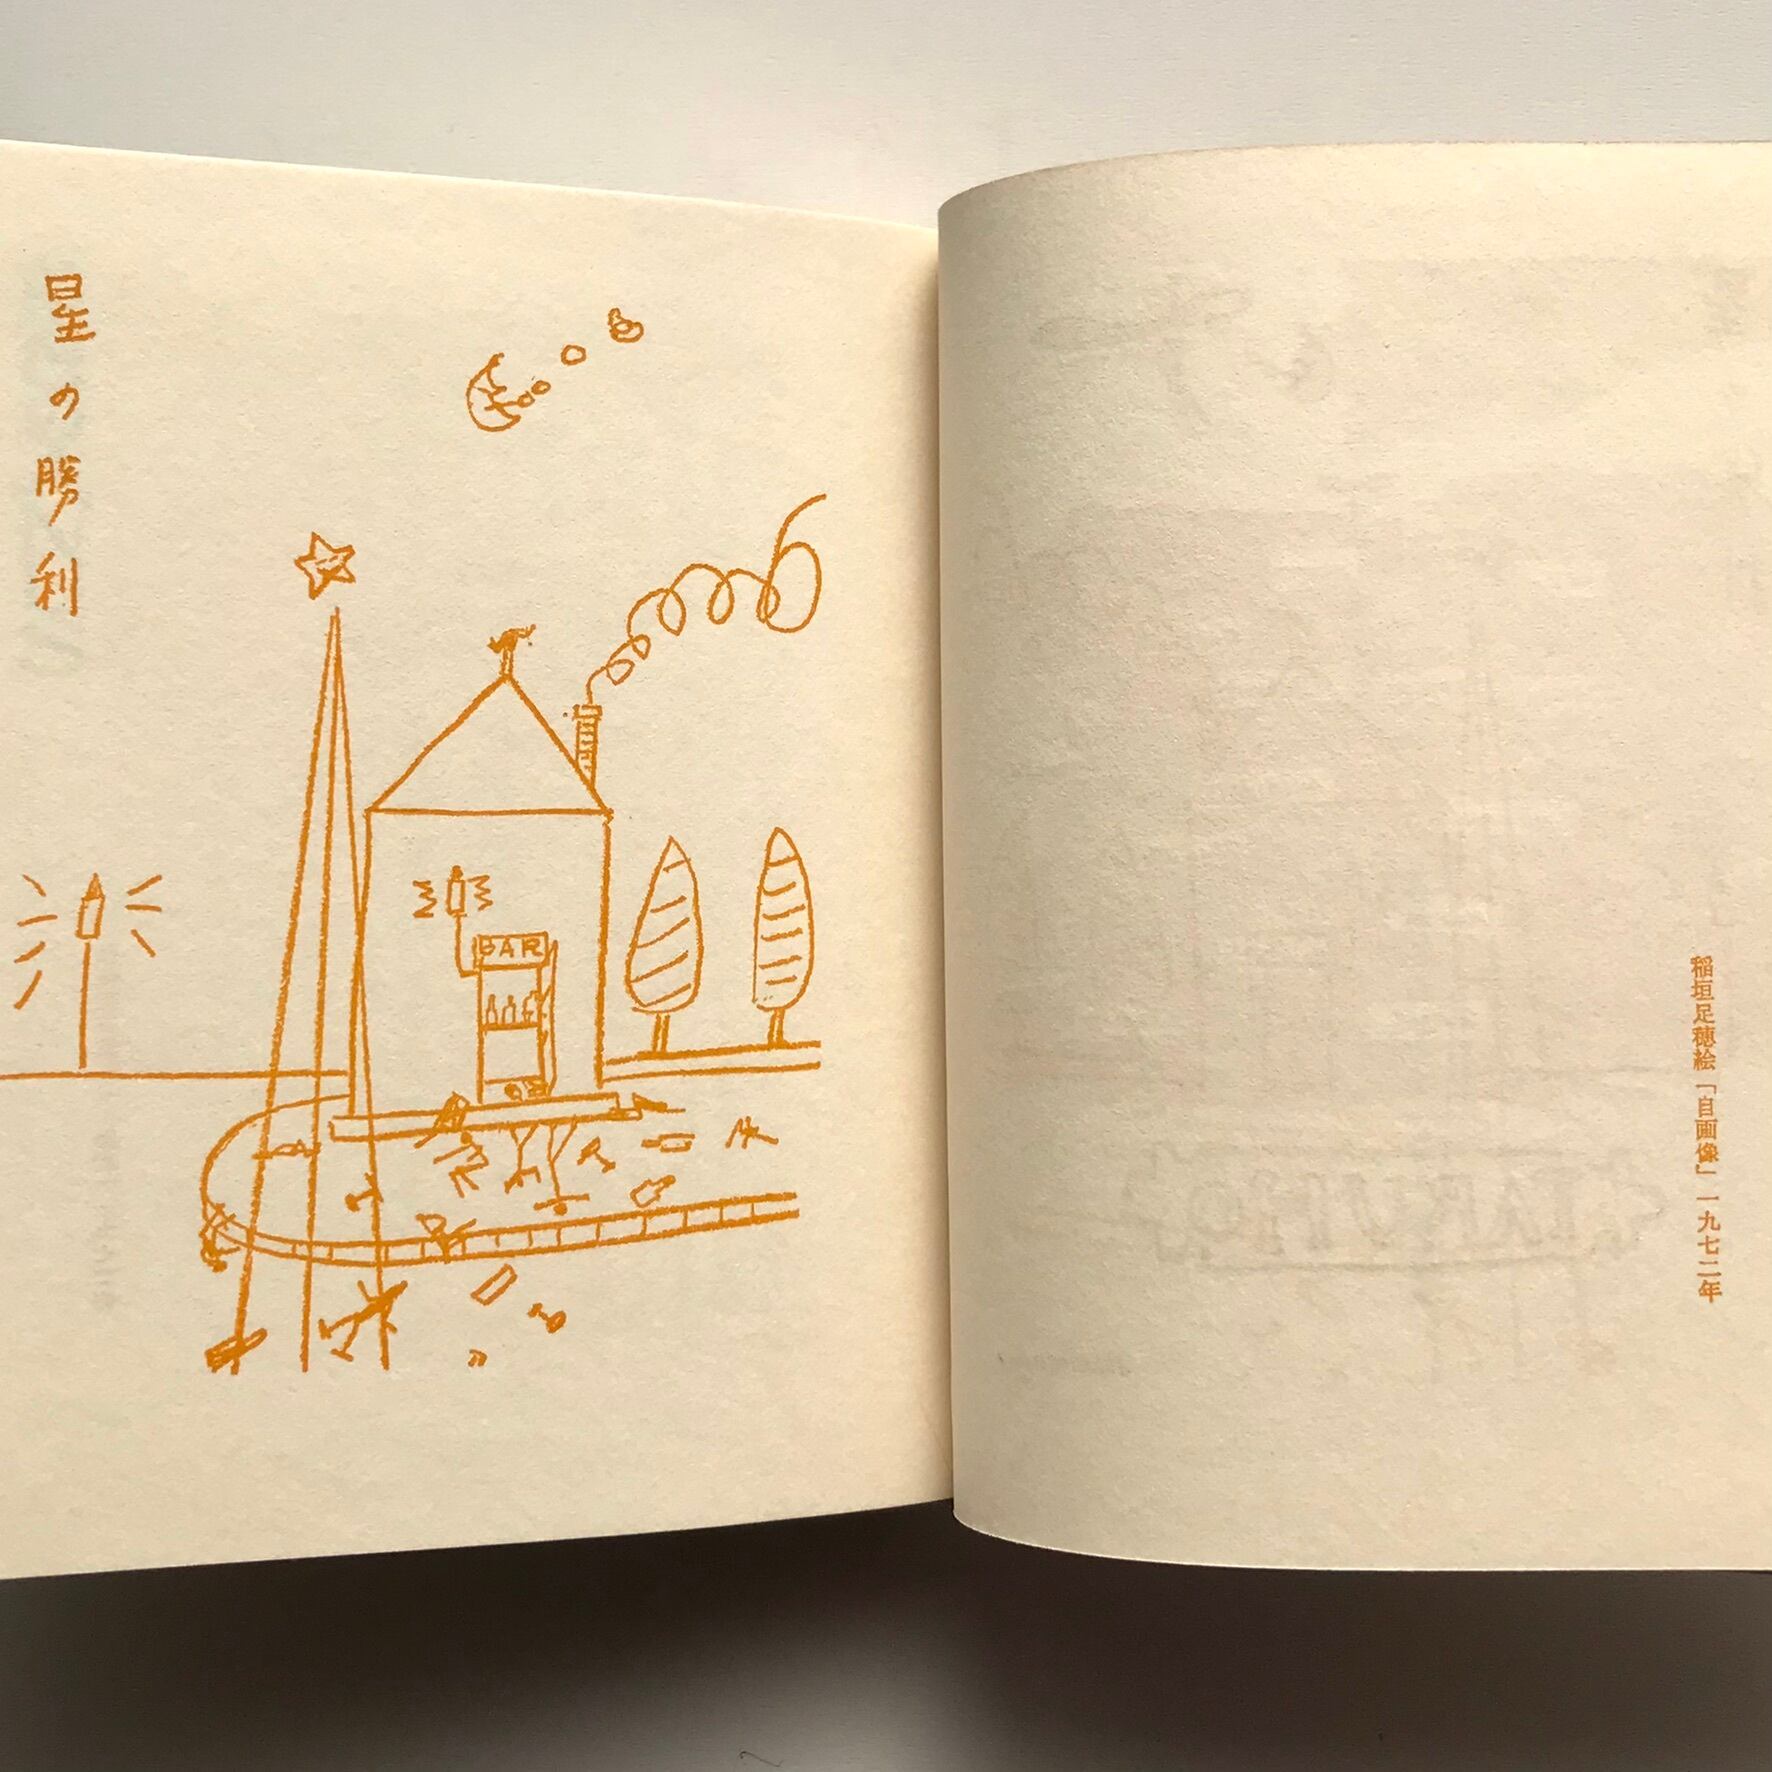 星の勝利
BAR
稲垣足穂絵「自画像」一九七二年